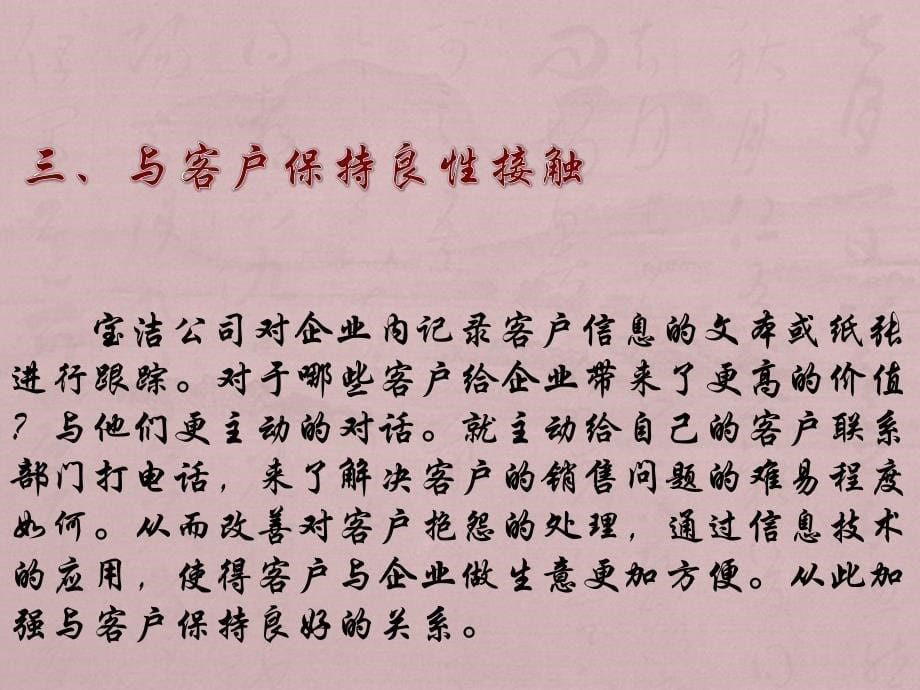 三、与客户保持良性接触
宝洁公司对企业内记录客户信息的文本或纸张
进行跟踪。对于哪些客户给企业带来了更高的价值
？与他们更主动的对话。就主动给自己的客户联系
部门打电话，来了解决客户的销售问题的难易程度
如何。从而改善对客户抱怨的处理，通过信息技术
的应用，使得客户与企业做生意更加方便。从此加
强与客户保持良好的关系。